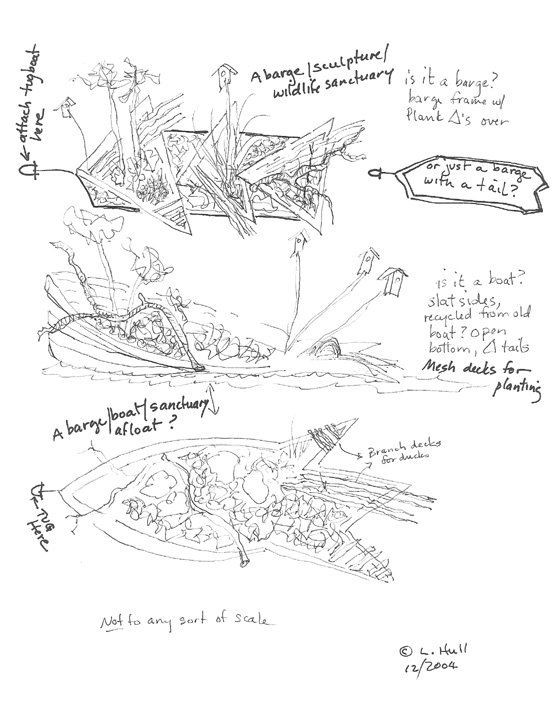 ← attach tugboat
here
A barge/sculpture/
wildlife sanctuary
is it a barge?
barge frame w/
Plank Δ's over
or just a barge
with a tail?
is it a boat?
slat sides,
recycled from old
boat? Open
bottom, Δ tails
Mesh decks for
planting
A barge/boat/sanctuary
afloat?
Branch decks
for ducks
← TUG
Here
Not to any sort of scale
© L. Hull
12/2004